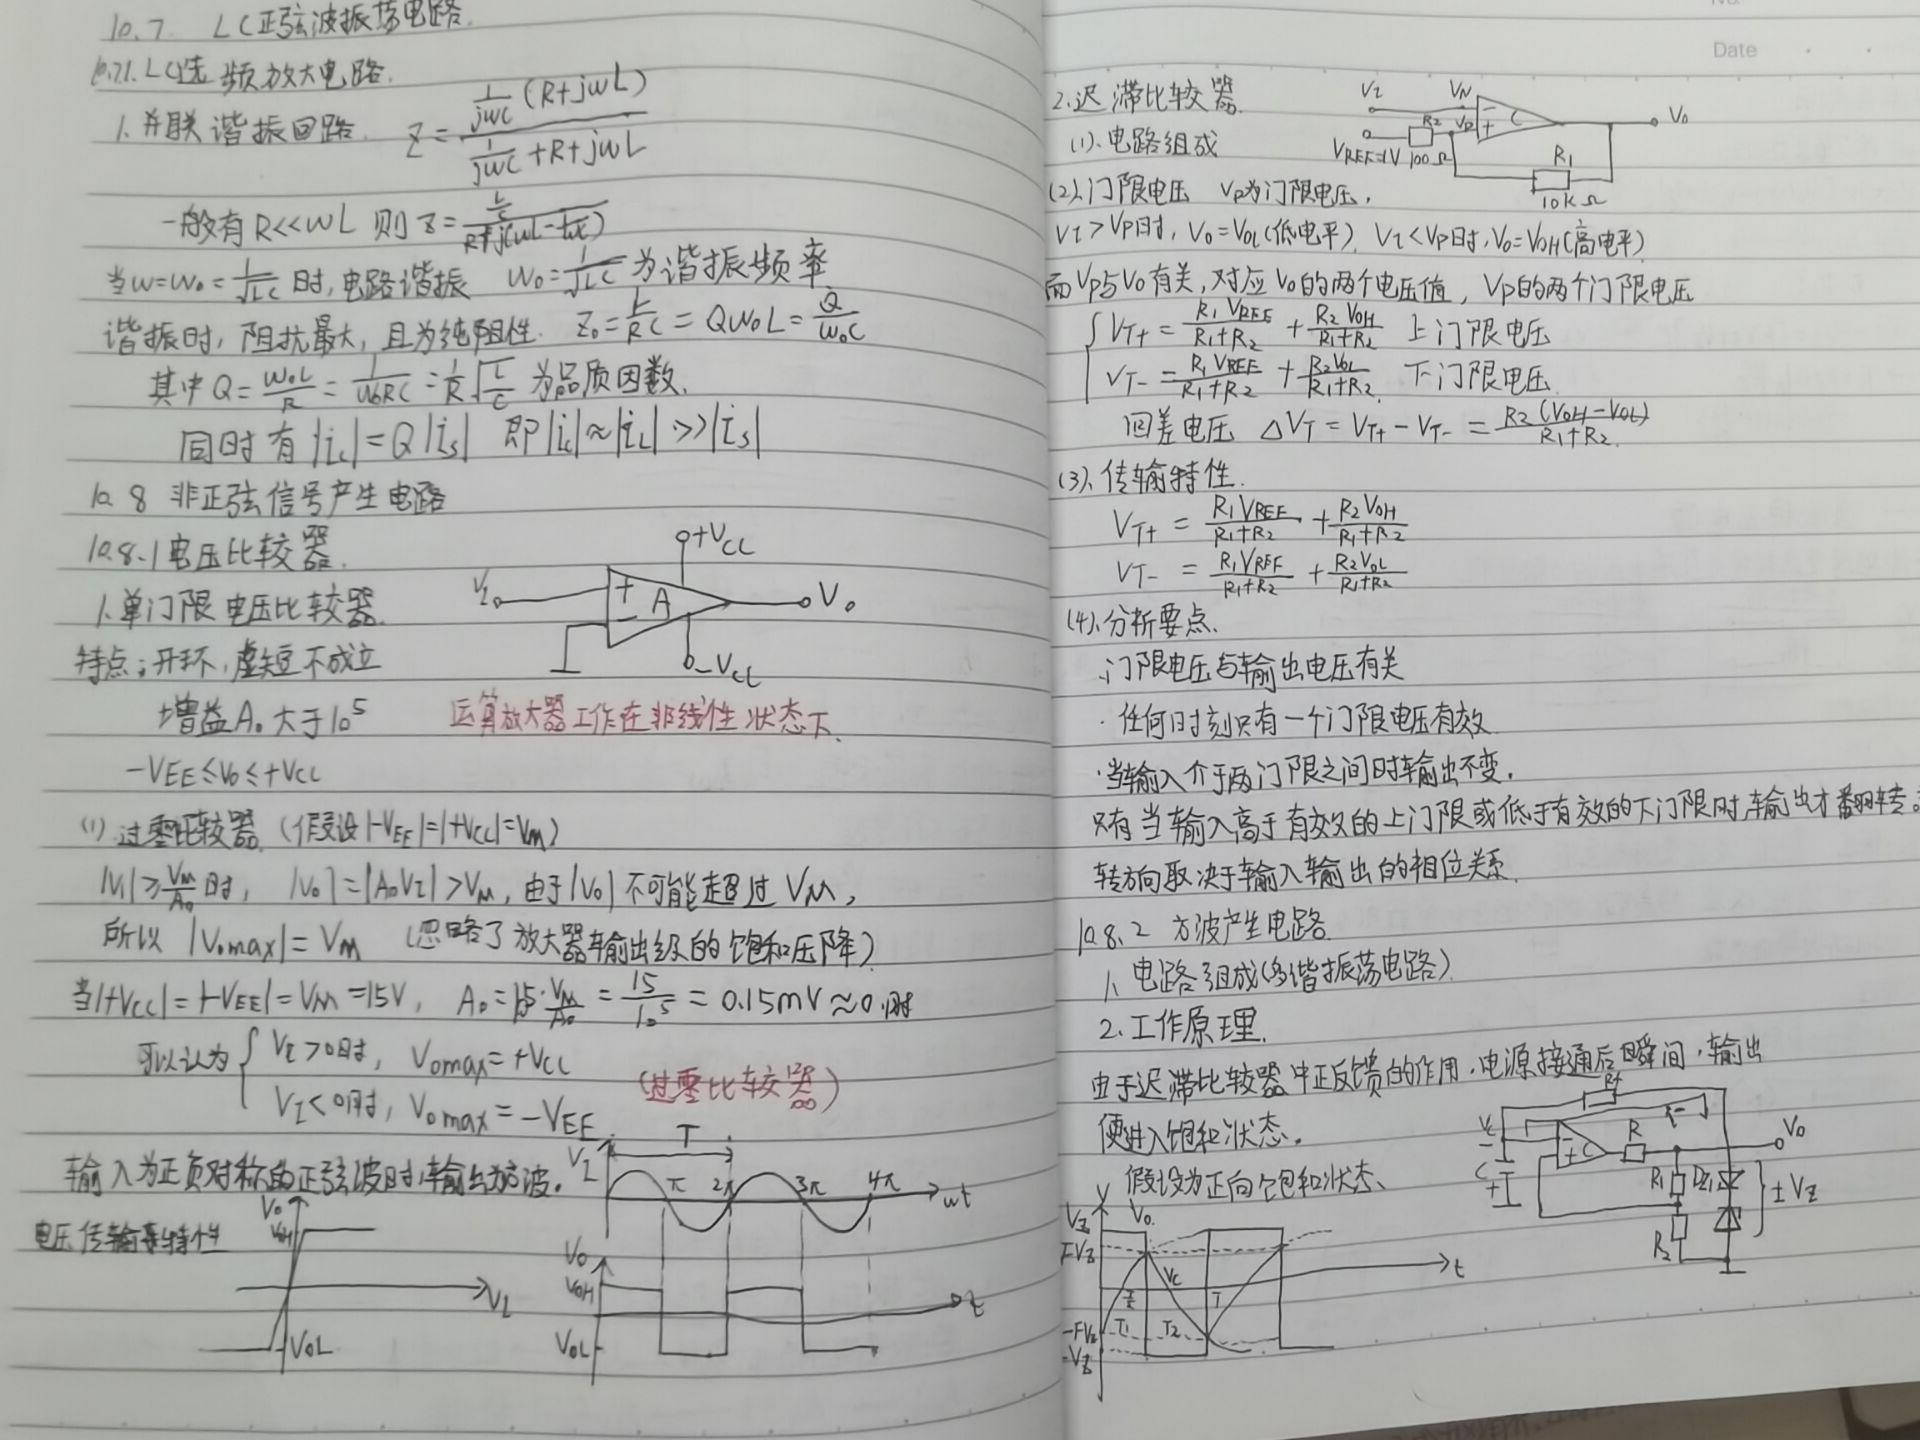 10.7. LC正弦波振荡电路.
10.7.1. LC选频放大电路.
1. 并联谐振回路. Z = \frac{\frac{1}{jwC}(R+jwL)}{\frac{1}{jwC}+R+jwL}
一般有 R<<wL 则 Z = \frac{\frac{L}{C}}{R+j(wL-\frac{1}{wC})}
当w=w₀=\frac{1}{\sqrt{LC}}时, 电路谐振 w₀=\frac{1}{\sqrt{LC}}为谐振频率
谐振时, 阻抗最大, 且为纯阻性. Z₀=\frac{L}{RC}=Qw₀L=\frac{Q}{w₀C}
其中 Q=\frac{w₀L}{R}=\frac{1}{w₀RC}=\frac{1}{R}\sqrt{\frac{L}{C}} 为品质因数.
同时有 |i̇c|=Q|i̇s| 即|i̇c|≈|i̇L|>>|i̇s|
10.8 非正弦信号产生电路
10.8.1电压比较器.
1.单门限电压比较器.
+VCC
VI + A - VO
-VCC
特点: 开环, 虚短不成立
增益A₀大于10⁵ 运算放大器工作在非线性状态下.
-VEE≤VO≤+VCC
(1).过零比较器 (假设|-VEE|=|+VCC|=VM)
|VI|≥\frac{VM}{A₀}时, |VO|=|A₀VI|>VM, 由于|VO|不可能超过VM,
所以 |Vomax|=VM (忽略了放大器输出级的饱和压降)
当|+VCC|=|-VEE|=VM=15V, A₀=10⁵·\frac{VM}{A₀}=\frac{15}{10⁵}=0.15mV≈0.时
可以认为 { VI>0时, Vomax=+VCC
VI<0时, Vomax=-VEE (过零比较器)
输入为正负对称的正弦波时,输出为方波.
VI T π 2π 3π 4π wt
电压传输特性
VO VOH VI VOL
VO VOH VOL t
Date
2.迟滞比较器.
(1).电路组成
VI VN - C VO
VREF=1V R2 100Ω VP + R1 10kΩ
(2).门限电压 VP为门限电压,
VI>VP时, VO=VOL(低电平) VI<VP时, VO=VOH(高电平)
而VP与VO有关, 对应VO的两个电压值, VP的两个门限电压
{ VT+ = \frac{R1VREF}{R1+R2} + \frac{R2VOH}{R1+R2} 上门限电压
VT- = \frac{R1VREF}{R1+R2} + \frac{R2VOL}{R1+R2}. 下门限电压
回差电压 △VT = VT+ - VT- = \frac{R2(VOH-VOL)}{R1+R2}
(3).传输特性.
VT+ = \frac{R1VREF}{R1+R2} + \frac{R2VOH}{R1+R2}
VT- = \frac{R1VREF}{R1+R2} + \frac{R2VOL}{R1+R2}
(4).分析要点.
·门限电压与输出电压有关
·任何时刻只有一个门限电压有效
·当输入介于两门限之间时输出不变.
只有当输入高于有效的上门限或低于有效的下门限时,输出才翻转.
转方向取决于输入输出的相位关系.
10.8.2 方波产生电路
1. 电路组成(多谐振荡电路).
2.工作原理.
由于迟滞比较器中正反馈的作用.电源接通后瞬间,输出
便进入饱和状态.
假设为正向饱和状态.
Rf VC C - + C R VO R1 DZ1 R2 ±VZ
V VO VZ FVZ VC t T1 T2 T -FVZ -VZ